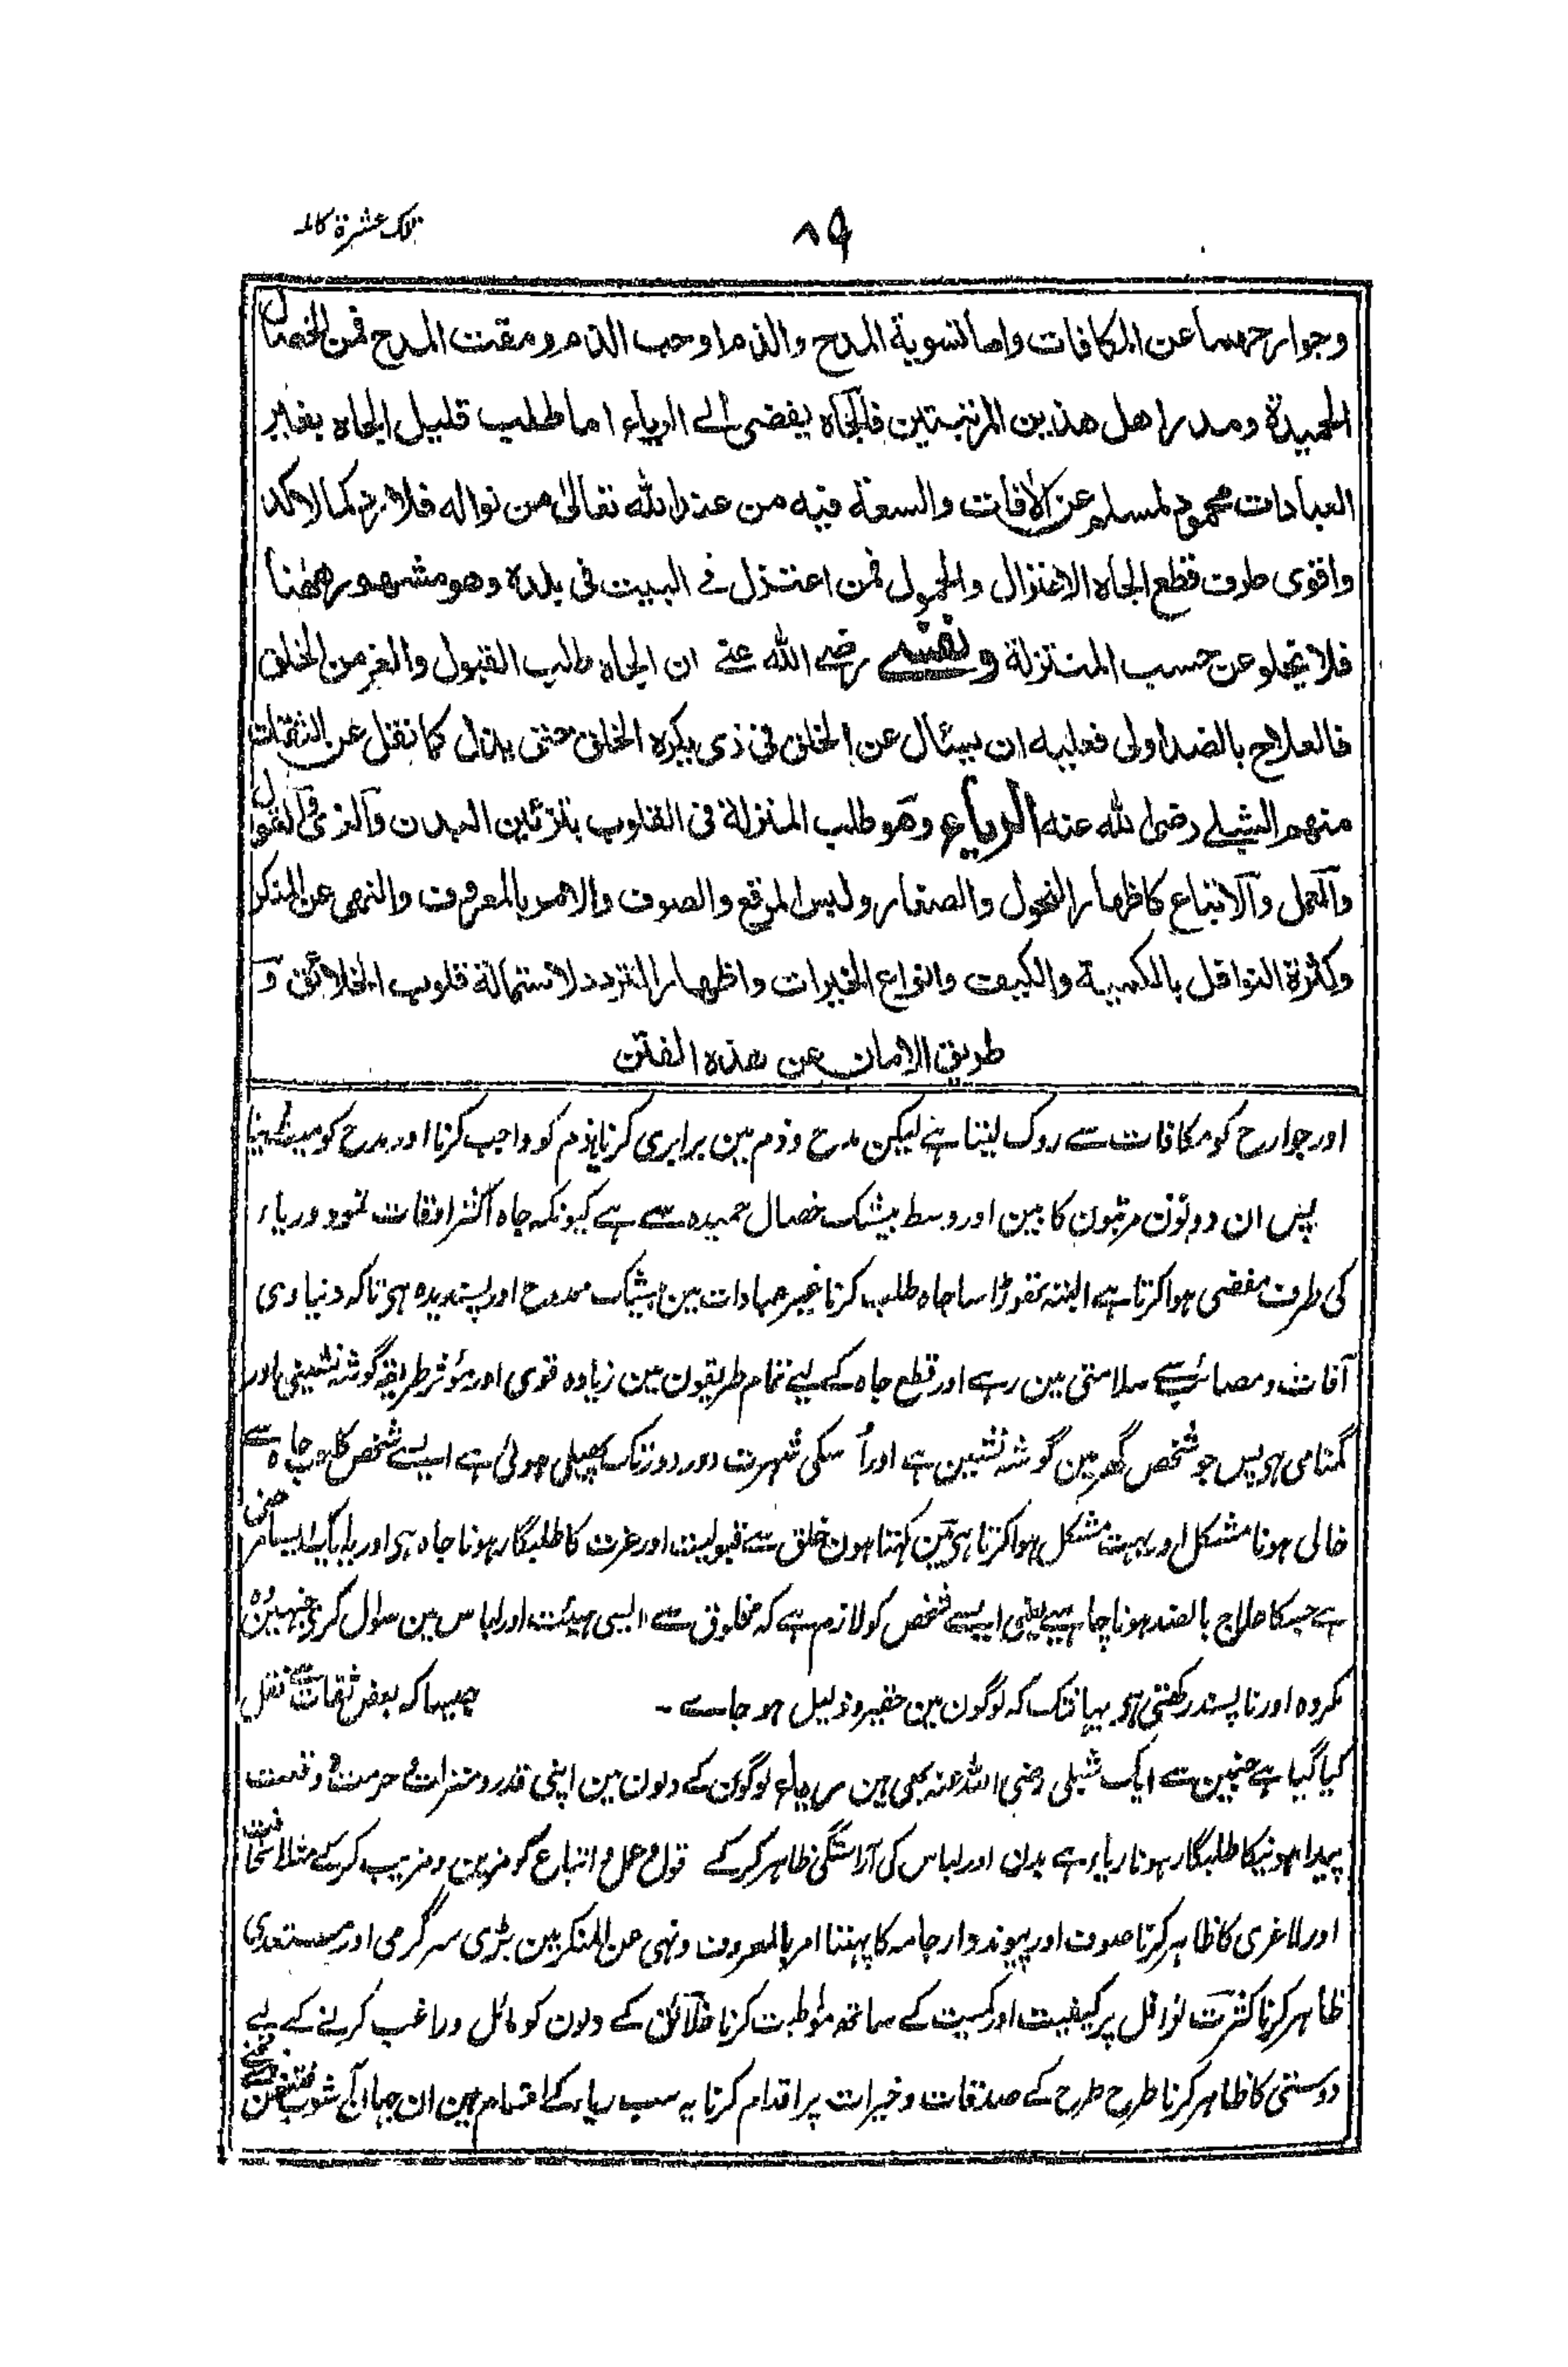 ٨٩
تلک عشرة کاملہ
وجوارحهما عن المكافات واما تسوية المدح والذم او حب الذم ومقت المدح فمن الخصال
الحميدة ومدر اهل هذين المرتبتين فالجاه يفضى الى الرياء اما طلب قليل الجاه بغير
العبادات محمود لمسلم عن الآفات والسعة فيه من عند الله تعالى من نواله فلا
واقوى طرق قطع الجاه الاعتزال والخمول فمن اعتزل فى البيت فى بلده وهو مشهور ههنا
فلا يخلو عن حسب المنزلة رضى الله عنى ان الجاه طلب القبول والعز من الخلق
فالعلاج بالضد اولى فعليه ان يسئال عن الخلق فى ذى يكره الخلق حتى يذل كما نقل عن الثقات
منهم الشبلى رضى الله عنه الرياء وهو طلب المنزلة فى القلوب بتزئين البدن والزى والقول
والعمل والاتباع كاظهار النحول والصفار ولبس المرقع والصوف والامر بالمعروف والنهى عن المنكر
وكثرة النوافل بالكمية والكيف وانواع الخيرات واظهار التودد لاستمالة قلوب الخلائق و
طريق الامان عن هذه الفتن
اور جوارح کو مکافات سے روک لینا ہے لیکن مدح و ذم مین برابری کرنا یا ذم کو واجب کرنا اور مدح کو
پس ان دونون مرتبون کا بین اور وسط بیشک خصال حمیدہ سے ہے کیونکہ جاہ اکثر اوقات نمود و ریاء
کی طرف مفضی ہوا کرتا ہے البتہ تھوڑا سا جاہ طلب کرنا غیر عبادات مین بیشک ممدوح اور پسندیدہ ہی تاکہ دنیاوی
آفات و مصائب سے سلامتی مین رہے اور قطع جاہ کے لیے تمام طریقون مین زیادہ قوی اور مؤثر طریقہ گوشہ نشینی اور
گمنامی ہی پس جو شخص گھر مین گوشہ نشین ہے اور اُسکی شہرت دور دور تک پھیلی ہوئی ہے ایسے شخص کا جاہ سے
خالی ہونا مشکل اور بہت مشکل ہوا کرتا ہی مین کہتا ہون خلق سے قبولیت اور عزت کا طلبگار ہونا جاہ ہی اور یہ ایک ایسا مرض
ہے جسکا علاج بالضد ہونا چاہیے یعنی ایسے شخص کو لازم ہے کہ مخلوق سے ایسی ہیئت اور لباس مین سوال کری جنہین وہ
مکروہ اور ناپسند رکھتی ہو یہانتک کہ لوگون مین حقیر و ذلیل ہو جاے ۔ جیسا کہ بعض ثقات سے نقل
کیا گیا ہے جنمین سے ایک شبلی رضی اللہ عنہ بھی ہین ریاء لوگون کے دلون مین اپنی قدر و منزلت و حرمت و وقعت
پیدا ہونیکا طلبگار ہونا ریاء ہے بدن اور لباس کی آراستگی ظاہر کر کے قول و عمل و اتباع کو مزین و مزیب کر کے مثلا
اور لاغری کا ظاہر کرنا صوف اور پیوندوار جامہ کا پہننا امر بالمعروف و نہی عن المنکر مین بڑی سرگرمی اور مستعدی
ظاہر کرنا کثرت نوافل پر کیفیت اور کمیت کے ساتھ مواظبت کرنا خلائق کے دلون کو مائل و راغب کرنے کے لیے
دوستی کا ظاہر کرنا طرح طرح کے صدقات و خیرات پر اقدام کرنا یہ سب ریاء کے اقسام ہین ان جہان آشوب